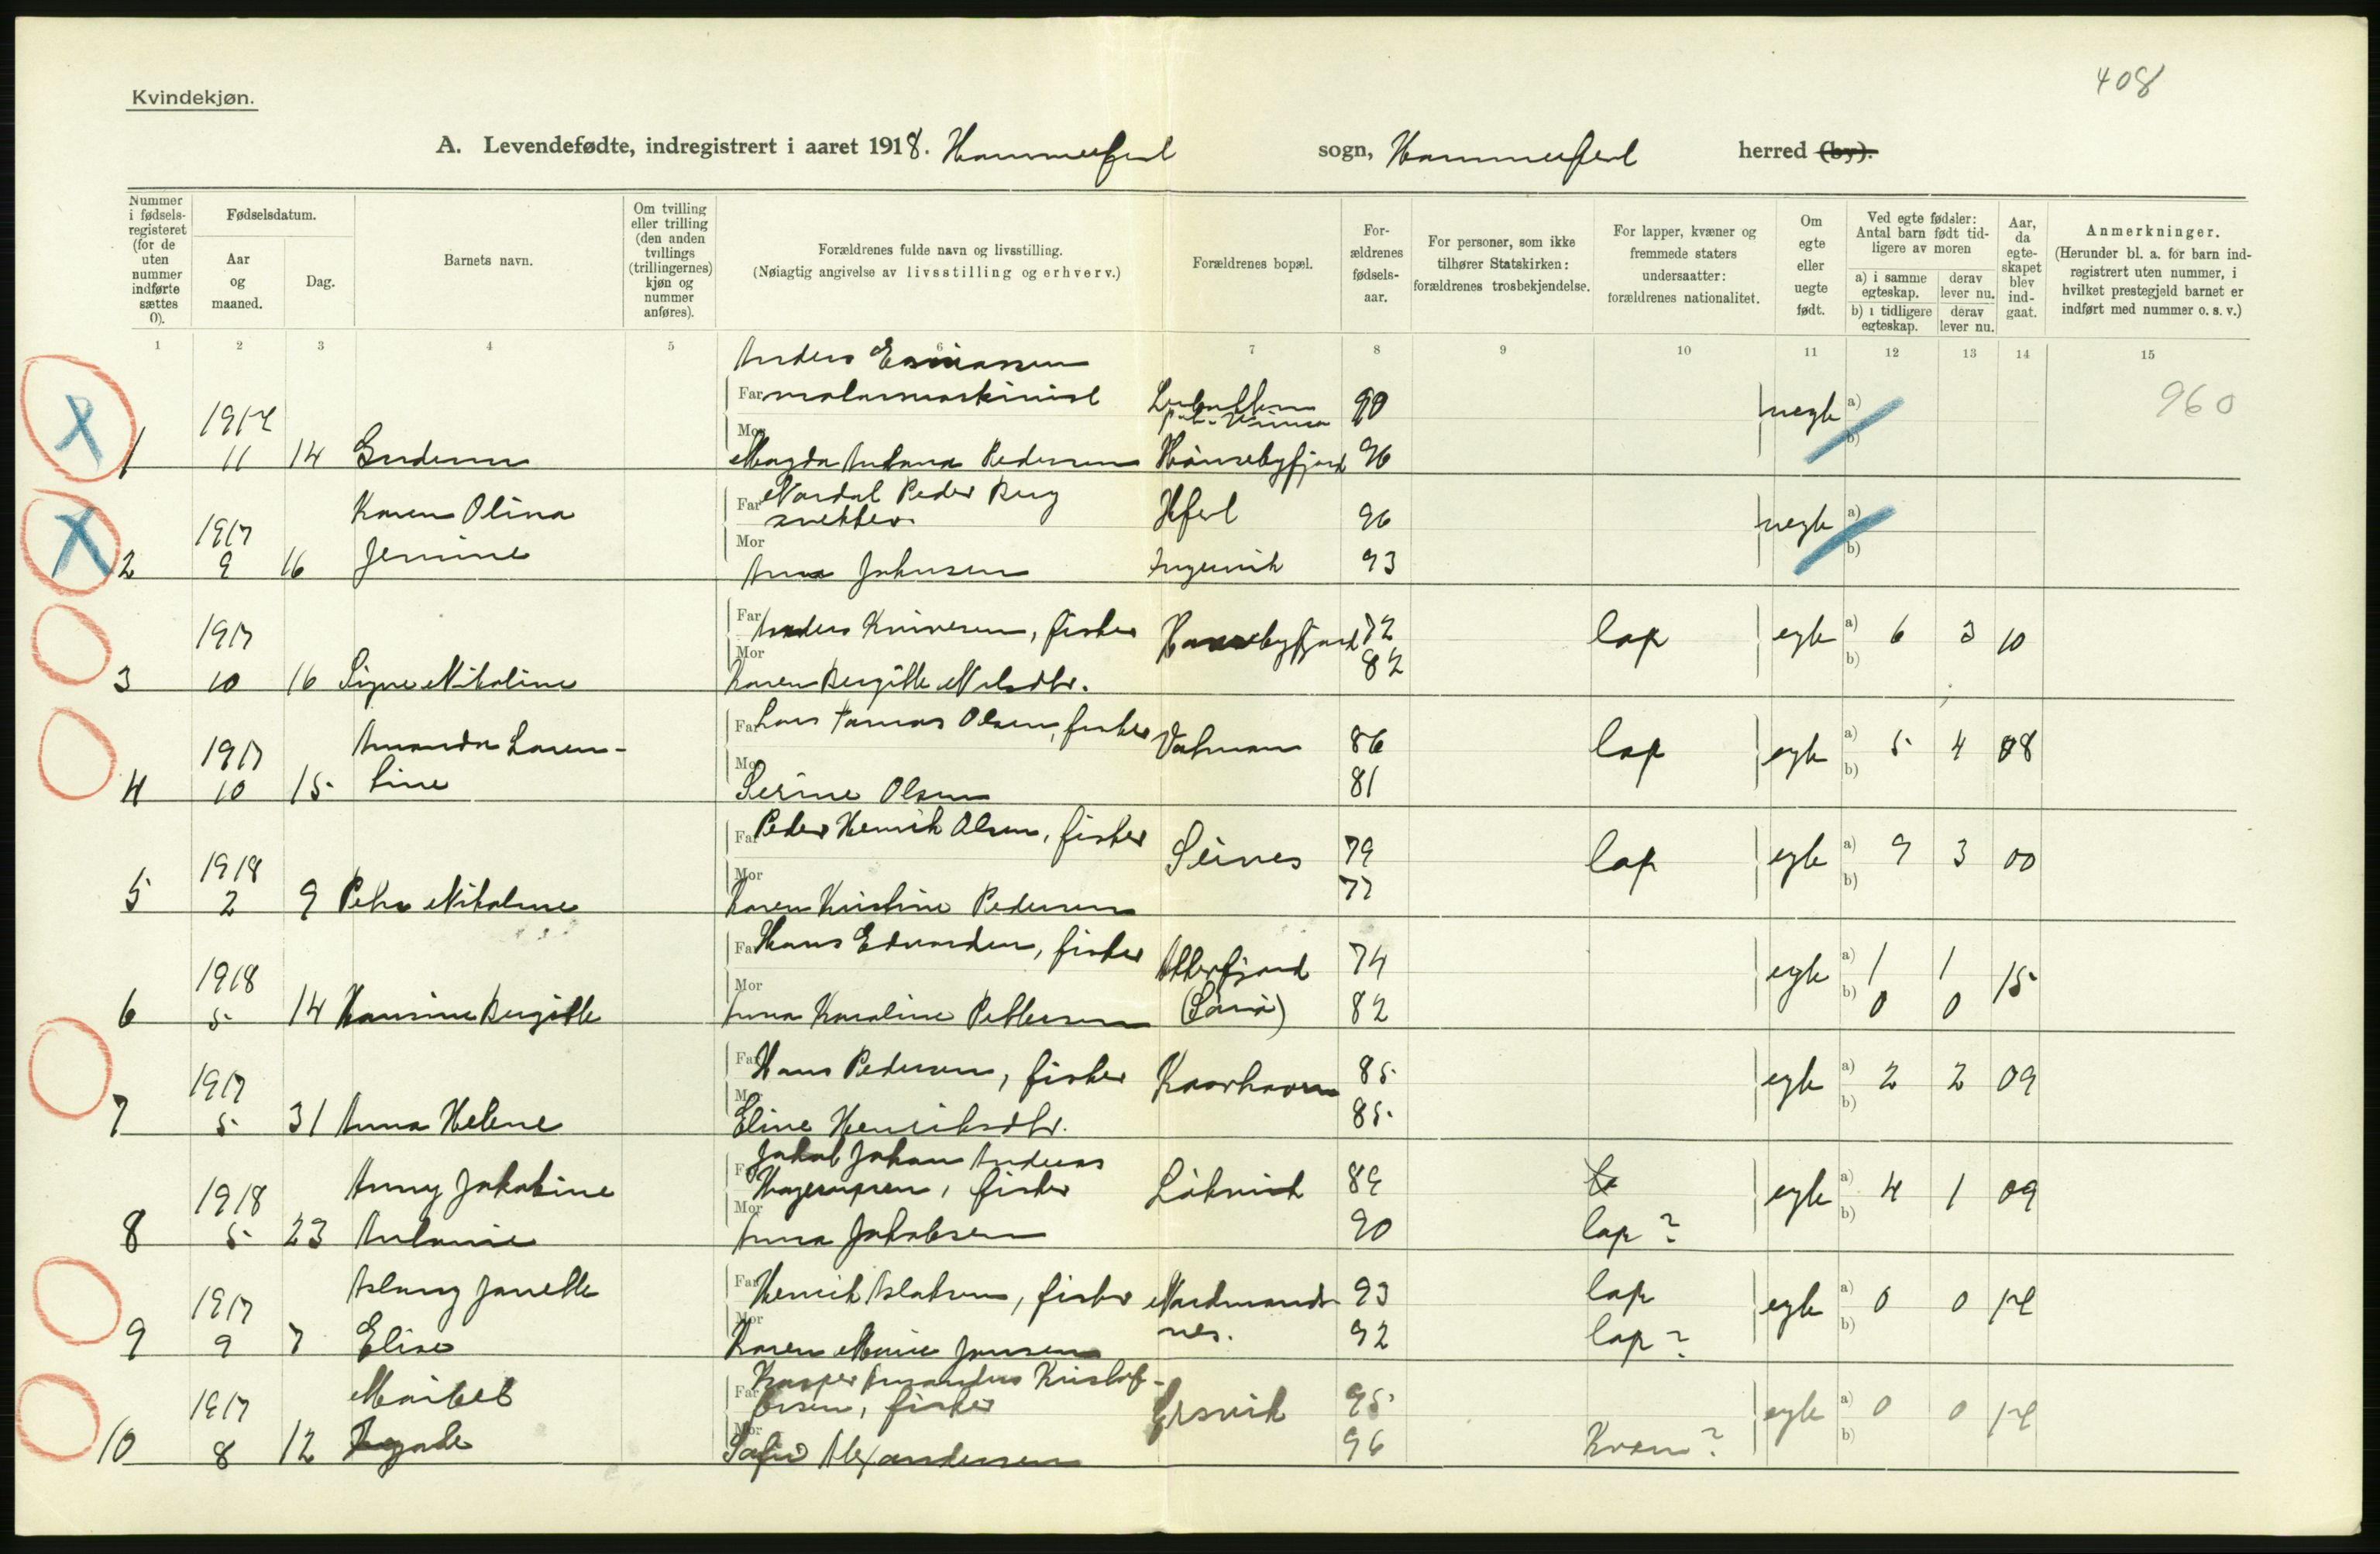 408
Kvindekjøn.
A. Levendefødte, indregistrert i aaret 1918. Hammerfest sogn, Hammerfest herred (by).
Nummer i fødsels-registeret (for de uten nummer indførte sættes 0).
Fødselsdatum.
Aar og maaned.
Dag.
Barnets navn.
Om tvilling eller trilling (den anden tvillings (trillingernes) kjøn og nummer anføres).
Forældrenes fulde navn og livsstilling.
(Nøiagtig angivelse av livsstilling og erhverv.)
Forældrenes bopæl.
For-ældrenes fødsels-aar.
For personer, som ikke tilhører Statskirken: forældrenes trosbekjendelse.
For lapper, kvæner og fremmede staters undersaatter: forældrenes nationalitet.
Om egte eller uegte født.
Ved egte fødsler: Antal barn født tid-ligere av moren
a) i samme egteskap.
derav lever nu.
b) i tidligere egteskap.
derav lever nu.
Aar, da egte-skapet blev ind-gaat.
Anmerkninger.
(Herunder bl. a. for barn ind-registrert uten nummer, i hvilket prestegjeld barnet er indført med nummer o. s. v.)
1 2 3 4 5 6 7 8 9 10 11 12 13 14 15
Anders
Far 90 uegte a) 960
Mor b)
1 11 14 Magda Antona Pedersen 96
Far Nordal Peder Berg Hfest 96 uegte a)
1917 Karen Olina
Mor b)
2 9 16 Jensine Anna Johnsen 93
1917 Far Anders Kniversen, fisker 72 lap egte a) 6 3 10
Mor 82 b)
3 10 16 Signe Nikoline Karen Bergitte Nilsdtr.
1917 Amanda Laren- Far Lars Tomas Olsen, fisker 86 lap egte a) 5 4 08
Mor b)
4 10 15 tine Serine Olsen 81
1918 Far Peder Henrik Olsen, fisker Seines 79 lap egte a) 9 3 00
Mor 77 b)
5 2 9 Petra Nikoline Karen Kristine Pedersen
1918 Far Hans Edvardsen, fisker 74 egte a) 1 1 15
Mor b) 0 0
6 5 14 Hansine Bergitte Anna Karoline Pettersen 82
1917 Far Hans Pedersen, fisker Kaarhavn 85 egte a) 2 2 09
Mor 85 b)
7 5 31 Anna Helene Eline Henriksdtr.
Far Jakob Johan Andreas
1918 Anny Jakobine fisker 89 egte a) 4 1 09
Mor b)
8 5 23 Antonie Anna Jakobsen 90 lap?
1917 Aslaug Janette Far Henrik Aslaksen, fisker Nordmands- 93 lap egte a) 0 0 14
Mor nes. b)
9 9 7 Elise Karen Marie Jansen 92 lap?
Far Kasper Amandus Kristof-
1917 fersen, fisker 95 egte a) 0 0 14
Mor b)
10 8 12 Sofie Alexandersen 96 Kvæn?